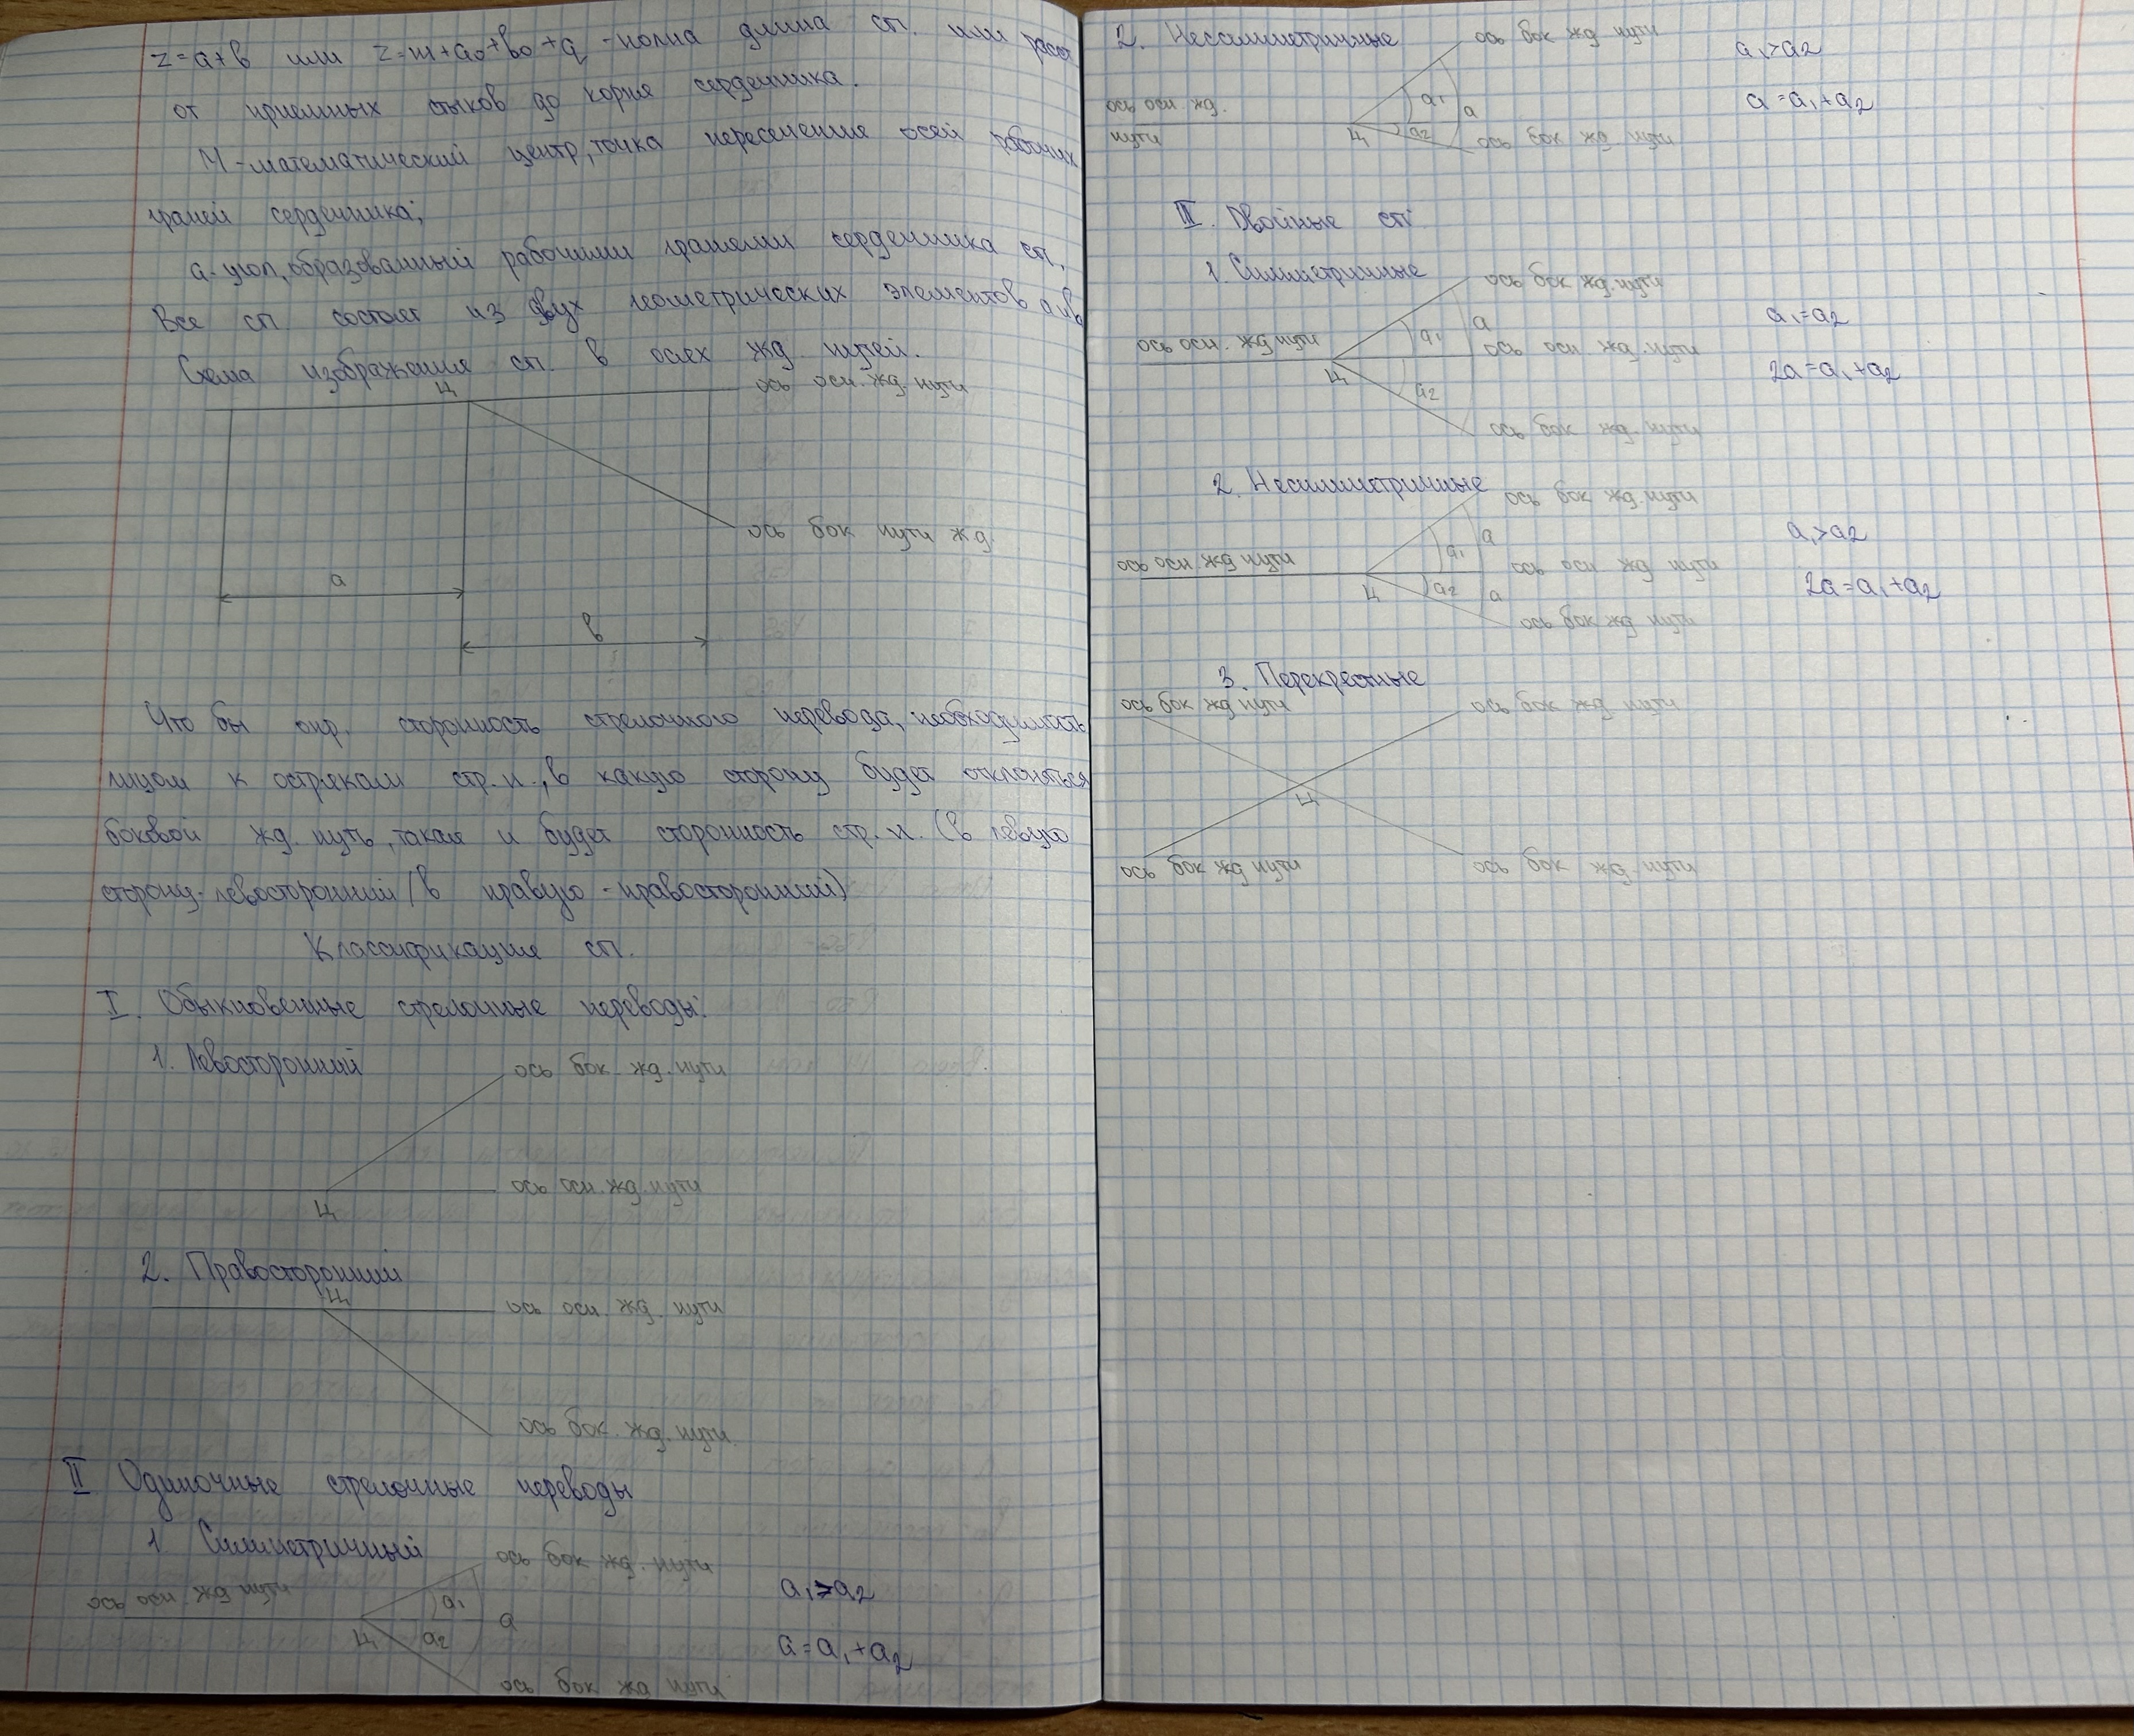 z=a+в или z=m+a₀+в₀+q -полна длина сп. или расст
от приемных стыков до корня сердечника.
М-математический центр, точка пересечение осей рабочих
граней сердечника;
a-угол, образованный рабочими гранями сердечника сп.
Все сп состоят из двух геометрических элементов a и в
Схема изображения сп. в осях жд. путей.
Ц
ось осн. жд. пути
ось бок пути жд.
a
в
Что бы опр. сторонность стрелочного перевода, необходимо
лицом к острякам стр.п., в какую сторону будет отклоняться
боковой жд. путь, такая и будет сторонность стр.п. (в левую
сторону-левосторонний/в правую -правосторонний)
Классификация сп.
I. Обыкновенные стрелочные переводы:
1. Левосторонний
ось бок. жд. пути
ось осн. жд. пути
Ц
2. Правосторонний
Ц
ось осн. жд. пути
ось бок. жд. пути
II Одиночные стрелочные переводы
1 Симметричный
ось бок жд. пути
ось осн. жд пути
a₁
a
Ц
a₂
ось бок жд пути
a₁>a₂
a=a₁+a₂
2. Несимметричные
ось бок жд пути
a₁>a₂
ось осн. жд.
пути
a₁
a
a=a₁+a₂
Ц
a₂
ось бок жд пути
III. Двойные сп:
1. Симметричные
ось бок жд. пути
ось осн. жд пути
a₁
a
ось осн жд. пути
a₁=a₂
Ц
a₂
2a=a₁+a₂
ось бок жд. пути
2. Несимметричные
ось бок жд. пути
ось осн. жд пути
a₁
a
ось осн жд пути
a₁>a₂
Ц
a₂
a
2a=a₁+a₂
ось бок жд пути
3. Перекрестные
ось бок жд пути
ось бок жд пути
Ц
ось бок жд пути
ось бок жд. пути